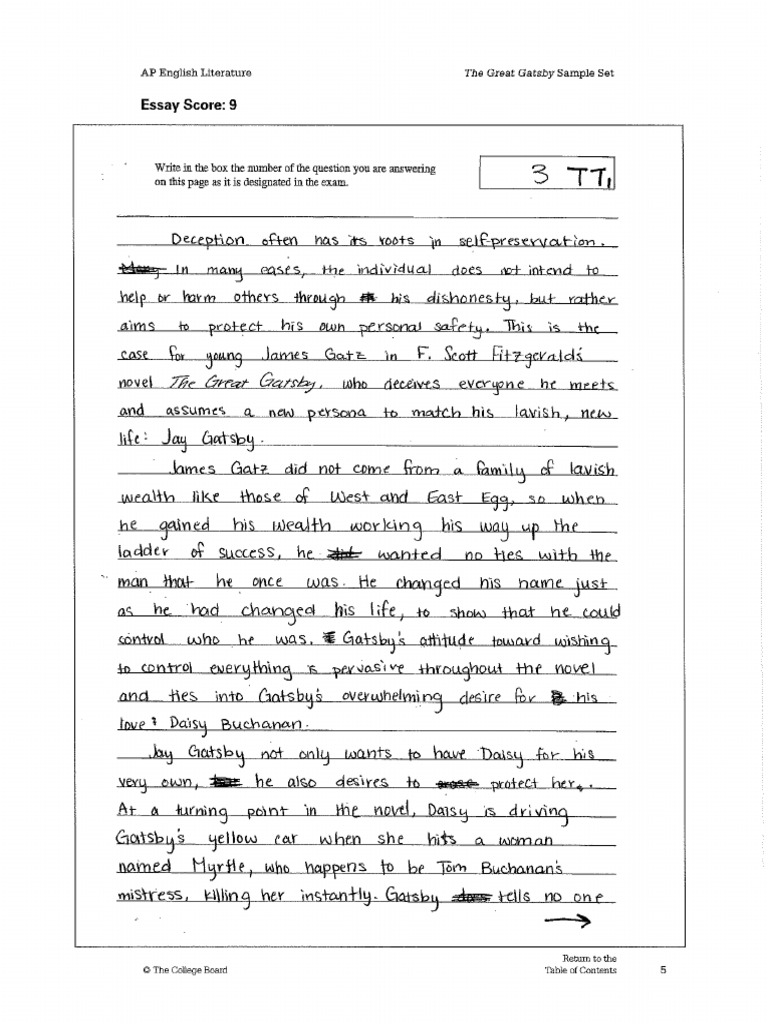 AP English Literature
The Great Gatsby Sample Set
Essay Score: 9
Write in the box the number of the question you are answering
on this page as it is designated in the exam.
3 TT,
Deception often has its roots in self-preservation.
In many cases, the individual does not intend to
help or harm others through his dishonesty, but rather
aims to protect his own personal safety. This is the
case for young James Gatz in F. Scott Fitzgerald's
novel The Great Gatsby, who deceives everyone he meets
and assumes a new persona to match his lavish, new
life: Jay Gatsby.
James Gatz did not come from a family of lavish
wealth like those of West and East Egg, so when
he gained his wealth working his way up the
ladder of success, he wanted no ties with the
man that he once was. He changed his name just
as he had changed his life, to show that he could
control who he was. Gatsby's attitude toward wishing
to control everything is pervasive throughout the novel
and ties into Gatsby's overwhelming desire for his
love: Daisy Buchanan.
Jay Gatsby not only wants to have Daisy for his
very own, he also desires to protect her.
At a turning point in the novel, Daisy is driving
Gatsby's yellow car when she hits a woman
named Myrtle, who happens to be Tom Buchanan's
mistress, killing her instantly. Gatsby tells no one
→
Return to the
© The College Board
Table of Contents
5